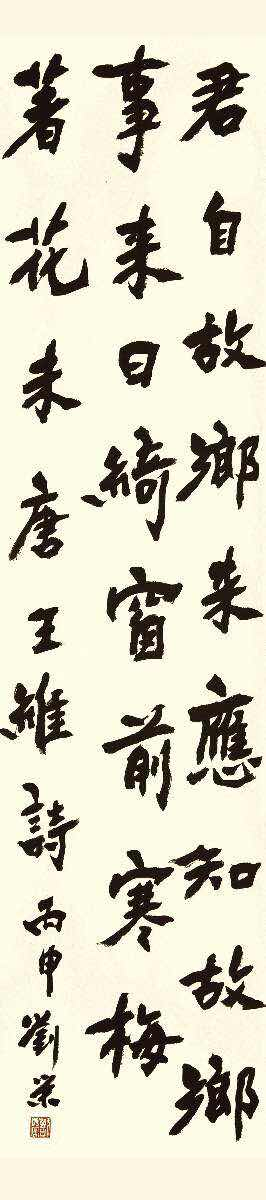 君自故鄉来應知故鄉
事来日綺窗前寒梅
著花未唐王維詩丙申劉荣